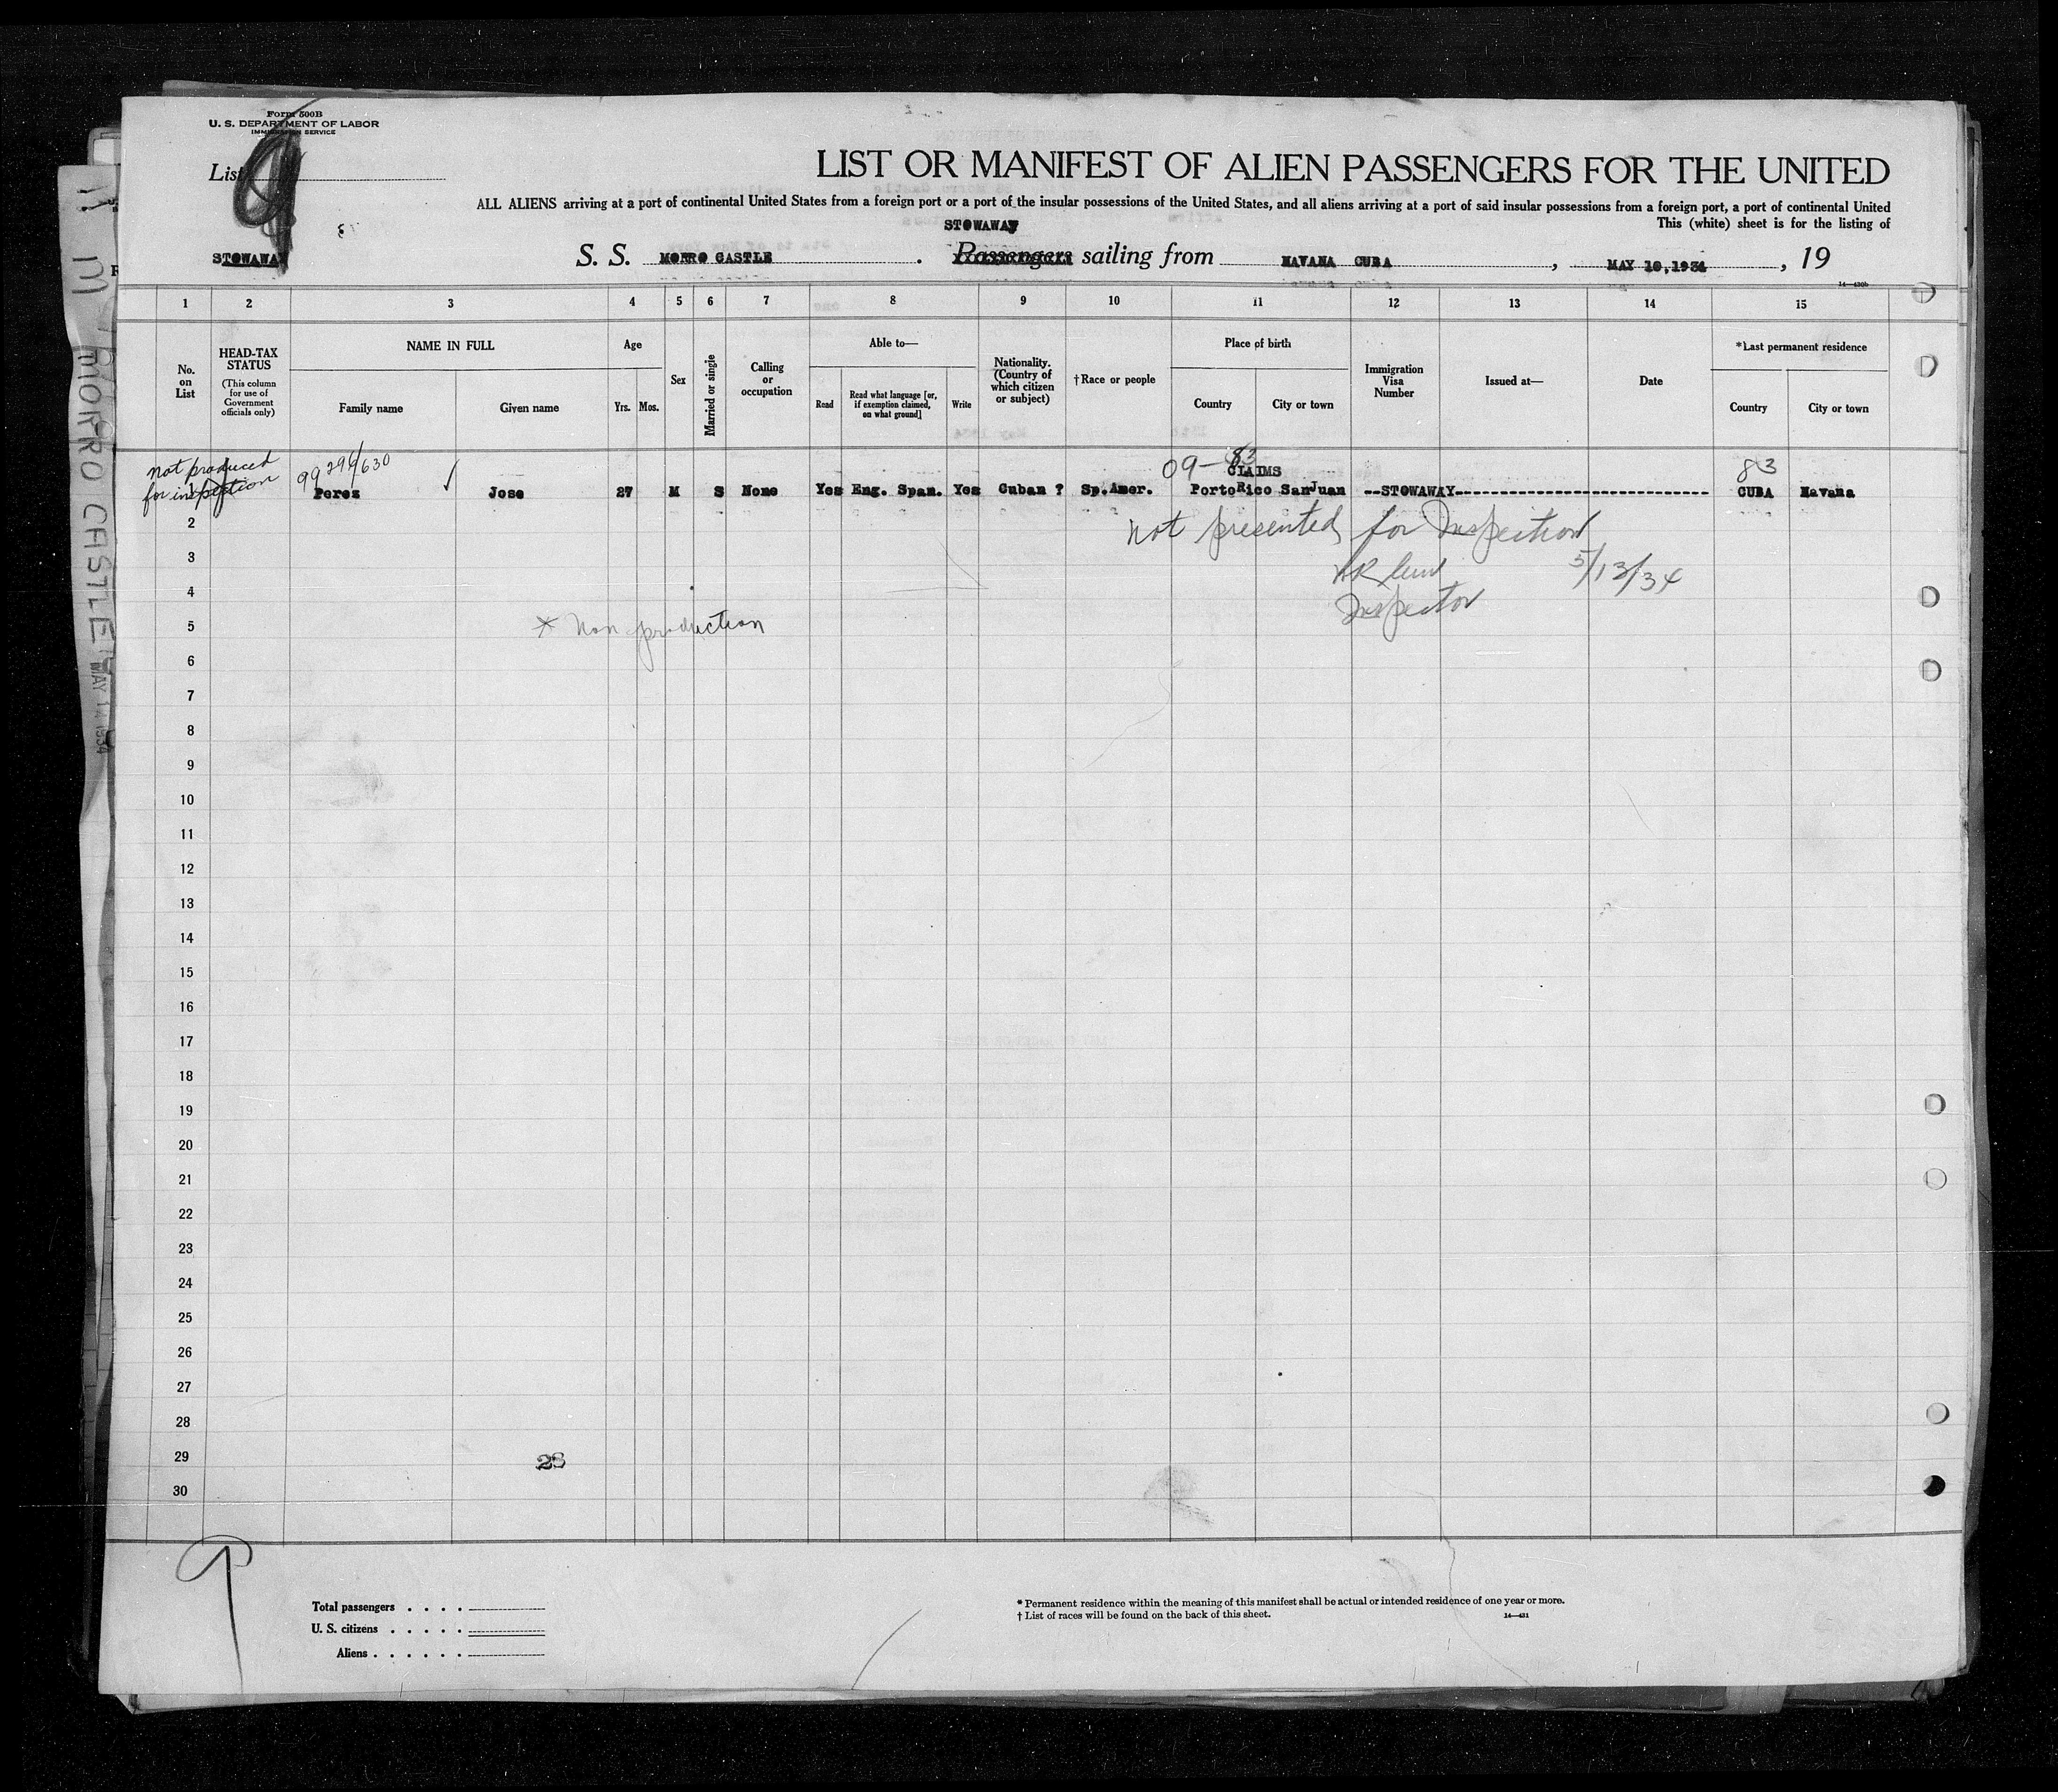 Form 500B
U. S. DEPARTMENT OF LABOR
IMMIGRATION SERVICE
List
9
LIST OR MANIFEST OF ALIEN PASSENGERS FOR THE UNITED
ALL ALIENS arriving at a port of continental United States from a foreign port or a port of the insular possessions of the United States, and all aliens arriving at a port of said insular possessions from a foreign port, a port of continental United
This (white) sheet is for the listing of
STOWAWAY
STOWAWAY S. S. MORRO CASTLE . Passengers sailing from HAVANA CUBA , MAY 10,1934 , 19
14—430b
1 2 3 4 5 6 7 8 9 10 11 12 13 14 15
No. on List
HEAD-TAX STATUS (This column for use of Government officials only)
NAME IN FULL
Family name Given name
Age
Yrs. Mos.
Sex
Married or single
Calling or occupation
Able to—
Read Read what language [or, if exemption claimed, on what ground] Write
Nationality. (Country of which citizen or subject)
†Race or people
Place of birth
Country City or town
Immigration Visa Number
Issued at—
Date
*Last permanent residence
Country City or town
not produced for inspection
99 296/630
09—83
CLAIMS
83
Perez ✓ Jose 27 M S None Yes Eng. Span. Yes Cuban ? Sp.Amer. PortoRico SanJuan --STOWAWAY-------------------------- CUBA Havana
not presented for Inspection
5/13/34
Inspector
* Non production
2
3
4
5
6
7
8
9
10
11
12
13
14
15
16
17
18
19
20
21
22
23
24
25
26
27
28
29
28
30
9
Total passengers . . . .
U. S. citizens . . . . .
Aliens . . . . . .
* Permanent residence within the meaning of this manifest shall be actual or intended residence of one year or more.
† List of races will be found on the back of this sheet.
14—431
MORRO CASTLE
MAY 14 1934